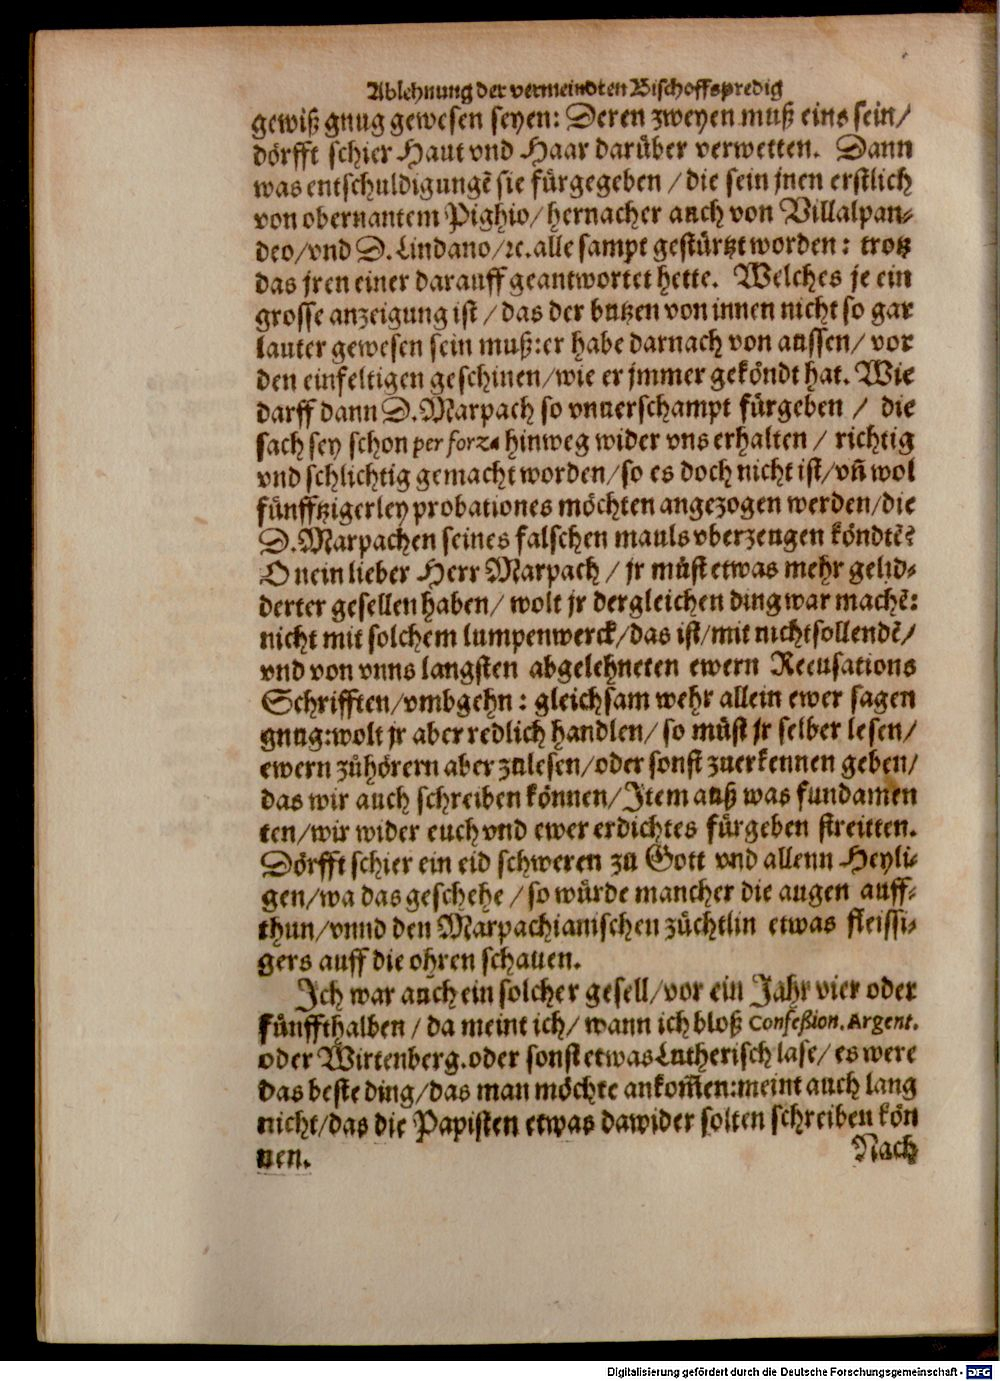 Ablehnung der vermeindten Bischoffspredig
gewiß gnug gewesen seyen: Deren zweyen muß eins sein/
dörfft schier Haut vnd Haar darüber verwetten. Dann
was entschuldigungē sie fürgegeben / die sein jnen erstlich
von obernantem Pighio/ hernacher auch von Villalpan-
deo/vnd D. Lindano/ꝛc. alle sampt gestürtzt worden: trotz
das jren einer darauff geantwortet hette. Welches je ein
grosse anzeigung ist / das der butzen von innen nicht so gar
lauter gewesen sein muß: er habe darnach von aussen/ vor
den einfeltigen geschinen/wie er jmmer geköndt hat. Wie
darff dann D. Marpach so vnuerschampt fürgeben / die
sach sey schon per forza hinweg wider vns erhalten / richtig
vnd schlichtig gemacht worden/so es doch nicht ist/vñ wol
fünfftzigerley probationes möchten angezogen werden/die
D. Marpachen seines falschen mauls vberzeugen köndtē?
O nein lieber Herr Marpach / jr müst etwas mehr gelid-
derter gesellen haben/ wolt jr dergleichen ding war machē:
nicht mit solchem lumpenwerck/das ist/mit nichtsollendē/
vnd von vnns langsten abgelehneten ewern Recusations
Schrifften/vmbgehn: gleichsam wehr allein ewer sagen
gnug: wolt jr aber redlich handlen/ so müst jr selber lesen/
ewern zůhörern aber zulesen/oder sonst zuerkennen geben/
das wir auch schreiben können/Item auß was fundamen
ten/wir wider euch vnd ewer erdichtes fürgeben streitten.
Dörfft schier ein eid schweren zů Gott vnd allenn Heyli-
gen/wa das geschehe / so würde mancher die augen auff-
thun/vnnd den Marpachianischen züchtlin etwas fleissi-
gers auff die ohren schauen.
Ich war auch ein solcher gesell/vor ein Jahr vier oder
fünffthalben / da meint ich/ wann ich bloß Confeßion. Argent.
oder Wirtenberg. oder sonst etwas Lutherisch lase/ es were
das beste ding/das man möchte ankom̄en: meint auch lang
nicht/das die Papisten etwas dawider solten schreiben kön
nen.
Nach
Digitalisierung gefördert durch die Deutsche Forschungsgemeinschaft - DFG